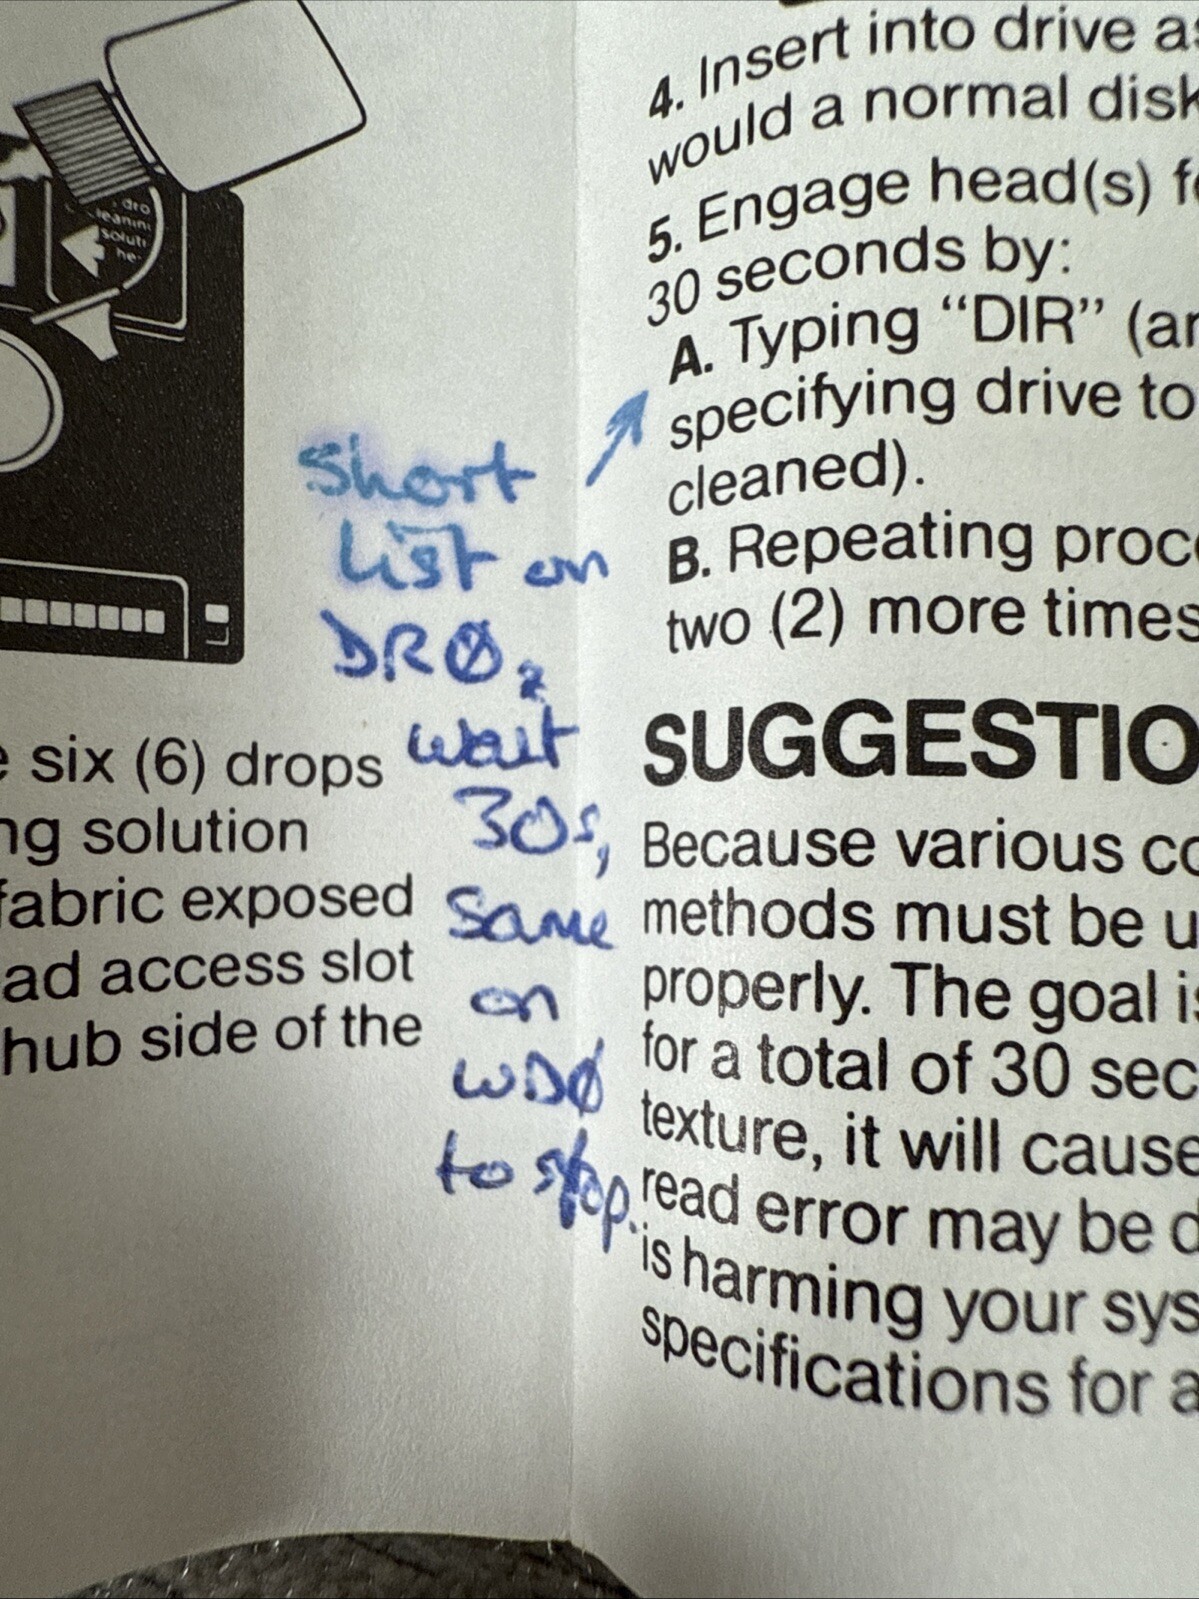 dro
leanin
soluti
he-
e six (6) drops
ng solution
fabric exposed
ad access slot
hub side of the
short
list on
DRØ,
wait
30s,
same
on
WDØ
to stop.
4. Insert into drive as
would a normal disk
5. Engage head(s) fo
30 seconds by:
A. Typing “DIR” (an
specifying drive to
cleaned).
B. Repeating proce
two (2) more times
SUGGESTIO
Because various co
methods must be u
properly. The goal is
for a total of 30 sec
texture, it will cause
read error may be d
is harming your sys
specifications for a